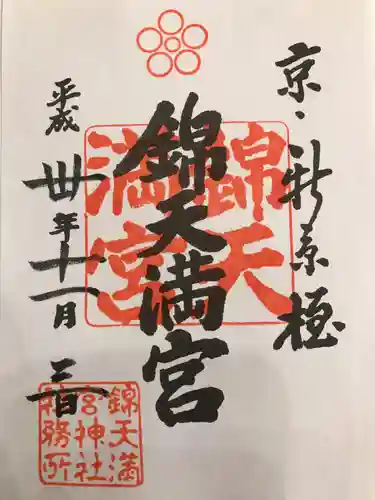 京・新京極
錦天満宮
平成卅年十一月三日
錦天
満宮
錦天満
宮神社
社務所